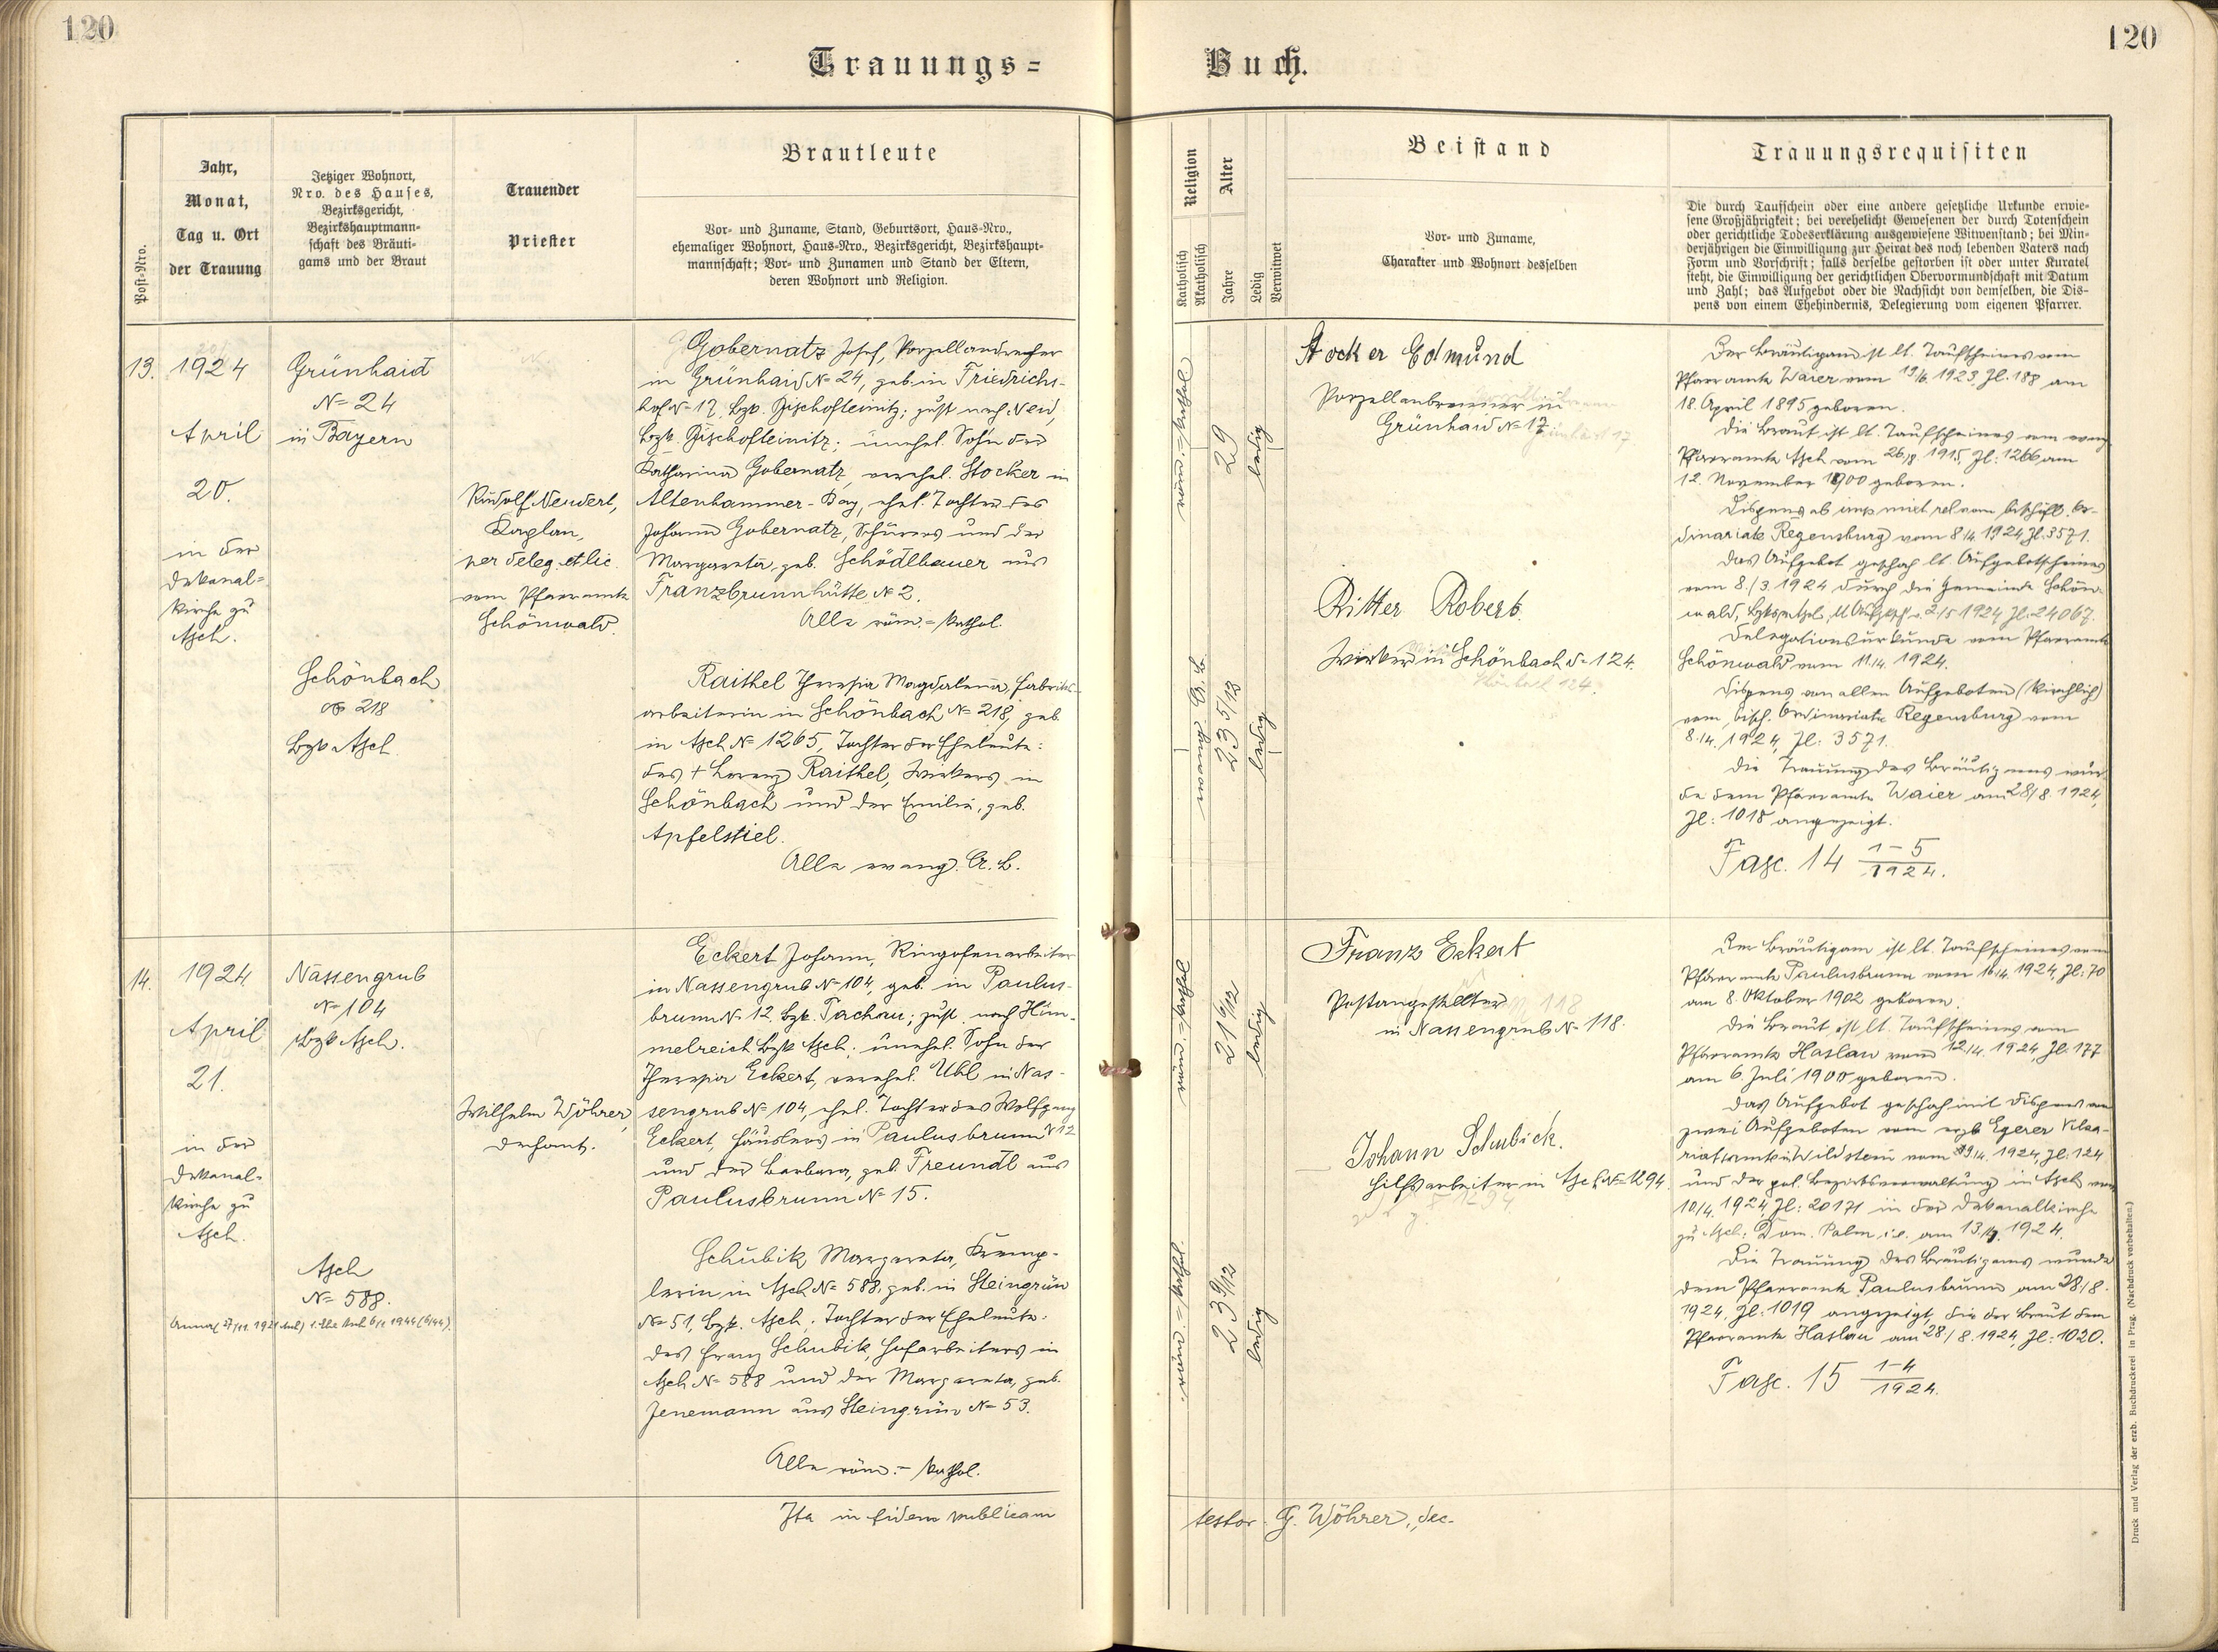 120
120
Trauungs=
Buch.
Post-Nro.
Jahr,
Monat,
Tag u. Ort
der Trauung
Jetziger Wohnort,
Nro. des Hauses,
Bezirksgericht,
Bezirkshauptmann-
schaft des Bräuti-
gams und der Braut
Trauender
Priester
Brautleute
Vor- und Zuname, Stand, Geburtsort, Haus-Nro.,
ehemaliger Wohnort, Haus-Nro., Bezirksgericht, Bezirkshaupt-
mannschaft; Vor- und Zunamen und Stand der Eltern,
deren Wohnort und Religion.
Religion
Katholisch
Akatholisch
Alter
Jahre
Ledig
Verwitwet
Beistand
Vor- und Zuname,
Charakter und Wohnort desselben
Trauungsrequisiten
Die durch Taufschein oder eine andere gesetzliche Urkunde erwie-
sene Großjährigkeit; bei verehelicht Gewesenen der durch Totenschein
oder gerichtliche Todeserklärung ausgewiesene Witwenstand; bei Min-
derjährigen die Einwilligung zur Heirat des noch lebenden Vaters nach
Form und Vorschrift; falls derselbe gestorben ist oder unter Kuratel
steht, die Einwilligung der gerichtlichen Obervormundschaft mit Datum
und Zahl; das Aufgebot oder die Nachsicht von demselben, die Dis-
pens von einem Ehehindernis, Delegierung vom eigenen Pfarrer.
13.
1924
April
20.
in der
Dekanal=
kirche zu
Asch.
Grünhaid
N= 24
in Bayern
Schönbach
N= 218
Bzk Asch.
Rudolf Neudert,
Kaplan,
per deleg. et lic.
vom Pfarramte
Schönwald.
Gobernatz Josef, Porzellandreher
in Grünhaid N= 24, geb. in Friedrichs-
hof N= 17, Bzk. Bischofteinitz; zust. nach Neid,
Bzk. Bischofteinitz; unehel. Sohn der
Katharina Gobernatz, verehel. Stocker in
Altenhammer-Bay, ehel. Tochter des
Johann Gobernatz, Schürers und der
Margareta, geb. Schödlbauer aus
Franzbrunnhütte N= 2.
Alle röm.= kathol.
Raithel Theresia Magdalena, Fabriks-
arbeiterin in Schönbach N= 218, geb.
in Asch N= 1265, Tochter der Eheleute:
des + Lorenz Raithel, Wirkers in
Schönbach und der Emilie, geb.
Apfelstiel.
Alle evang. A. B.
29
ledig
23 5/12
ledig
Stocker Edmund
Porzellanbrenner in
Grünhaid N= 17
Ritter Robert.
Wirker in Schönbach N= 124.
Der Bräutigam ist lt. Taufscheines vom
Pfarramte Waier vom 19/6. 1923, Zl. 188 am
18. April 1895 geboren.
Die Braut ist lt. Taufscheines vom evang.
Pfarramte Asch vom 26/8 1915, Zl: 1266 am
12. November 1900 geboren.
Dispens ab imp. mixt. rel. vom bischöfl. Or-
dinariate Regensburg vom 8/4. 1924, Zl. 3571.
Das Aufgebot geschah lt. Aufgebotscheines
vom 8./3. 1924 durch die Gemeinde Schön-
Delegationsurkunde vom Pfarramte
Schönwald vom 11./4. 1924.
Dispens von allen Aufgeboten (kirchlich)
vom bisch. Ordinariate Regensburg vom
8./4. 1924, Zl: 3571.
Die Trauung des Bräutigams wur-
de dem Pfarramte Waier am 28/8. 1924,
Zl: 1018 angezeigt.
Fasc. 14 1-5/1924.
14.
1924
April
21.
in der
Dekanal-
kirche zu
Asch.
Nassengrub
N= 104
Bzk Asch.
Asch
N= 588.
Wilhelm Wöhrer,
Dechant.
Eckert Johann, Ringofenarbeiter
in Nassengrub N= 104, geb. in Paulus-
brunn N= 12, Bzk. Tachau; zust. nach Him-
melreich Bzk Asch; unehel. Sohn der
Theresia Eckert, verehel. Uhl in Nas-
sengrub N= 104, ehel. Tochter des Wolfgang
Eckert, Häuslers in Paulusbrunn N 12
und der Barbara, geb. Freundl aus
Paulusbrunn N= 15.
Schubik Margareta, Kremp-
lerin in Asch N= 588, geb. in Steingrün
N= 51, Bzk. Asch; Tochter der Eheleute:
des Franz Schubik, Hofarbeiters in
Asch N= 588 und der Margareta, geb.
Jenemann aus Steingrün N= 53.
Alle röm.- kathol.
21 6/12
ledig
23 9/12
ledig
Franz Eckert
Postangestellter
in Nassengrub N= 118.
Johann Schubick.
Hilfsarbeiter in Asch N= 1294.
Der Bräutigam ist lt. Taufscheines vom
Pfarramte Paulusbrunn vom 16/4. 1924, Zl: 70
am 8. Oktober 1902 geboren.
Die Braut ist lt. Taufscheines vom
Pfarramte Haslau vom 12./4. 1924, Zl: 177
am 6. Juli 1900 geboren.
Das Aufgebot geschah mit Dispens von
zwei Aufgeboten vom erzb. Egerer Vika-
riatsamte in Wildstein vom 9/4. 1924, Zl: 124
und der pol. Bezirksverwaltung in Asch vom
10/4. 1924, Zl: 20171 in der Dekanalkirche
zu Asch. Dom. Palm. i.e. am 13./4. 1924.
Die Trauung des Bräutigams wurde
dem Pfarramte Paulusbrunn am 28/8.
1924, Zl: 1019 angezeigt, die der Braut dem
Pfarramte Haslau am 28./8. 1924, Zl: 1020.
Fasc. 15 1-4/1924.
Ita in fidem publicam
testor G. Wöhrer, dec.
Druck und Verlag der erzb. Buchdruckerei in Prag. (Nachdruck vorbehalten.)